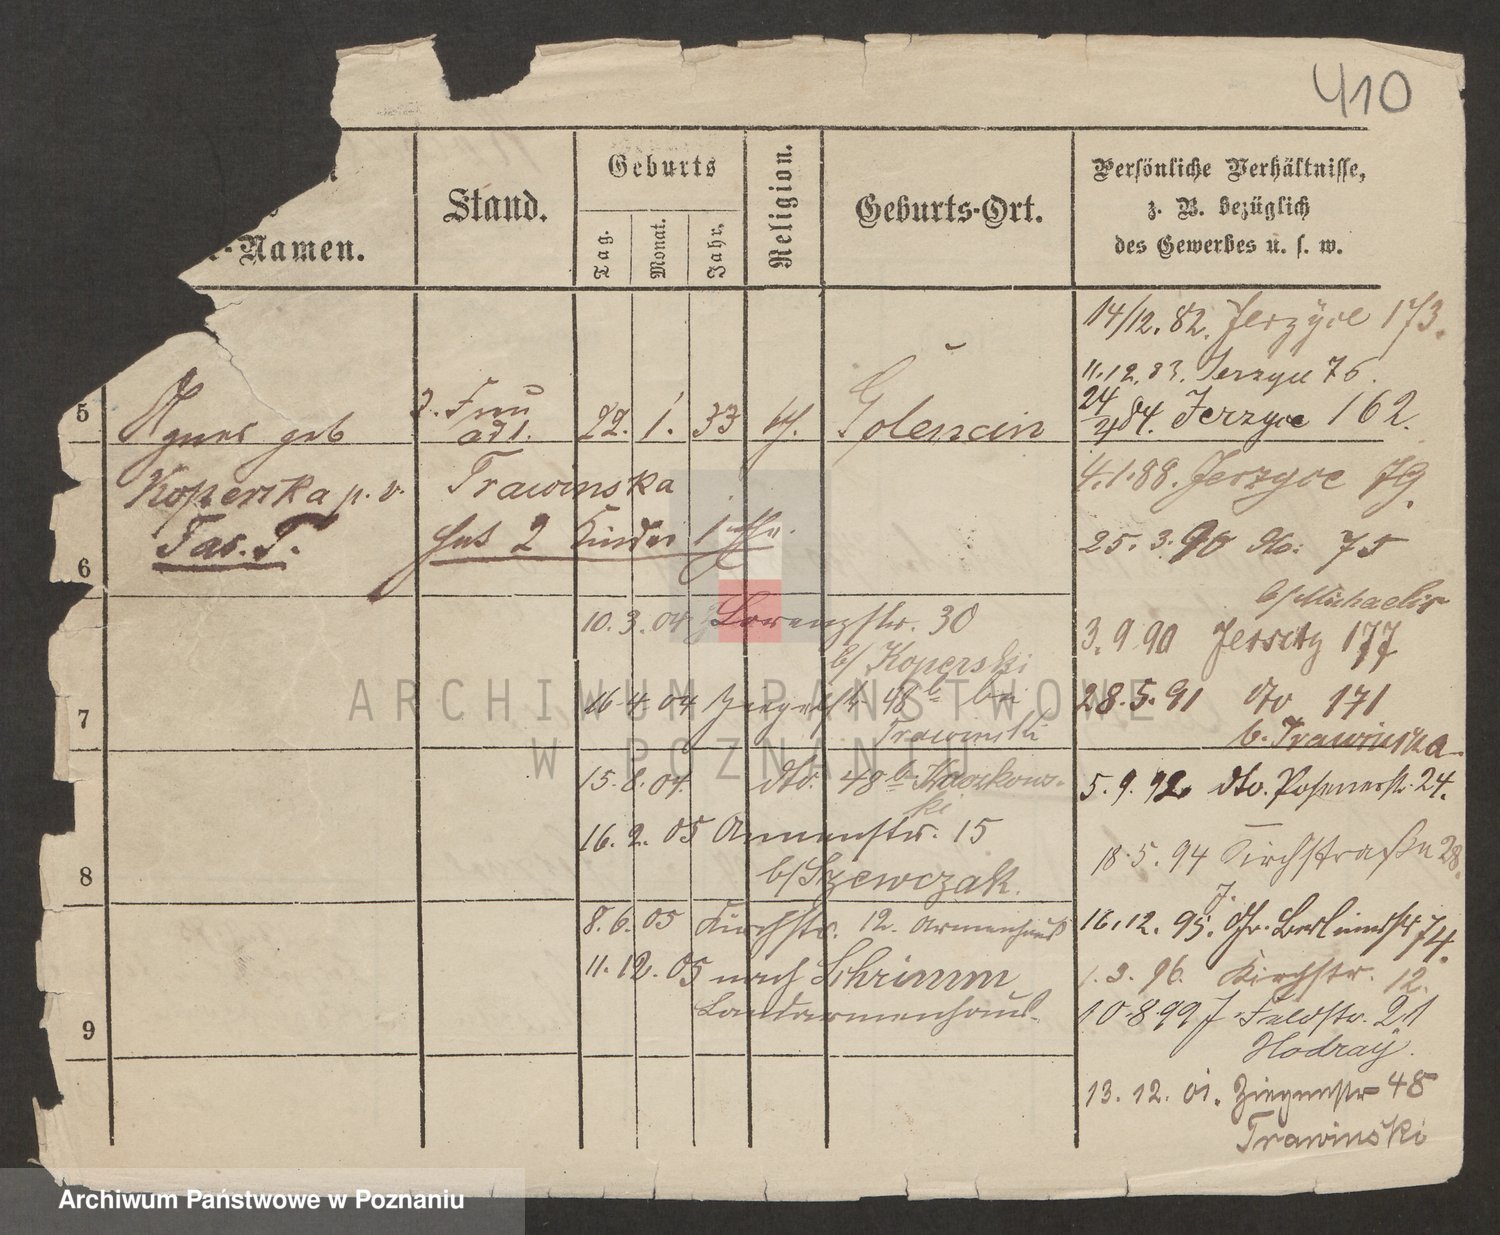 410
-Namen.
Stand.
Geburts
Tag.
Monat.
Jahr.
Religion.
Geburts-Ort.
Persönliche Verhältnisse,
z. B. bezüglich
des Gewerbes u. s. w.
14/12. 82. Jerzyce 173.
11.12.83. Jerzyce 76.
24/2 84. Jerzyce 162.
5
Agnes geb
Koperska p. v.
Fas. T.
2. Frau
ad 1.
Trawinska
hat 2 Kinder 1
22. 1. 33 k. Golencin
4.1.88. Jerzyce 79.
25. 3. 90 do: 75
b/Michaelis
6
10. 3. 04 Lorenzstr. 30
b/ Koperski
3. 9 90 Jersitz 177
7
16 4. 04 48 b bei
Trawinski
28. 5. 91 dto 171
b. Trawinska
15. 8. 04. dto. 48 b Kaczkows-
ki
5. 9. 92 dto. Posenerstr. 24.
16. 2. 05 Annenstr. 15
b/Szewczak.
8
18. 5. 94 Kirchstraße 28.
8. 6. 05 Kirchstr. 12. Armenhaus
16. 12. 95. J. Berlinerstr 74.
11. 12. 05 nach Schrimm
Landarmenhaus.
1. 3. 96. Kirchstr. 12.
9
10.8.99 J. Feldstr. 21
Hodray.
13. 12. 01. 48
Trawinski
ARCHIWUM PAŃSTWOWE
W POZNANIU
Archiwum Państwowe w Poznaniu